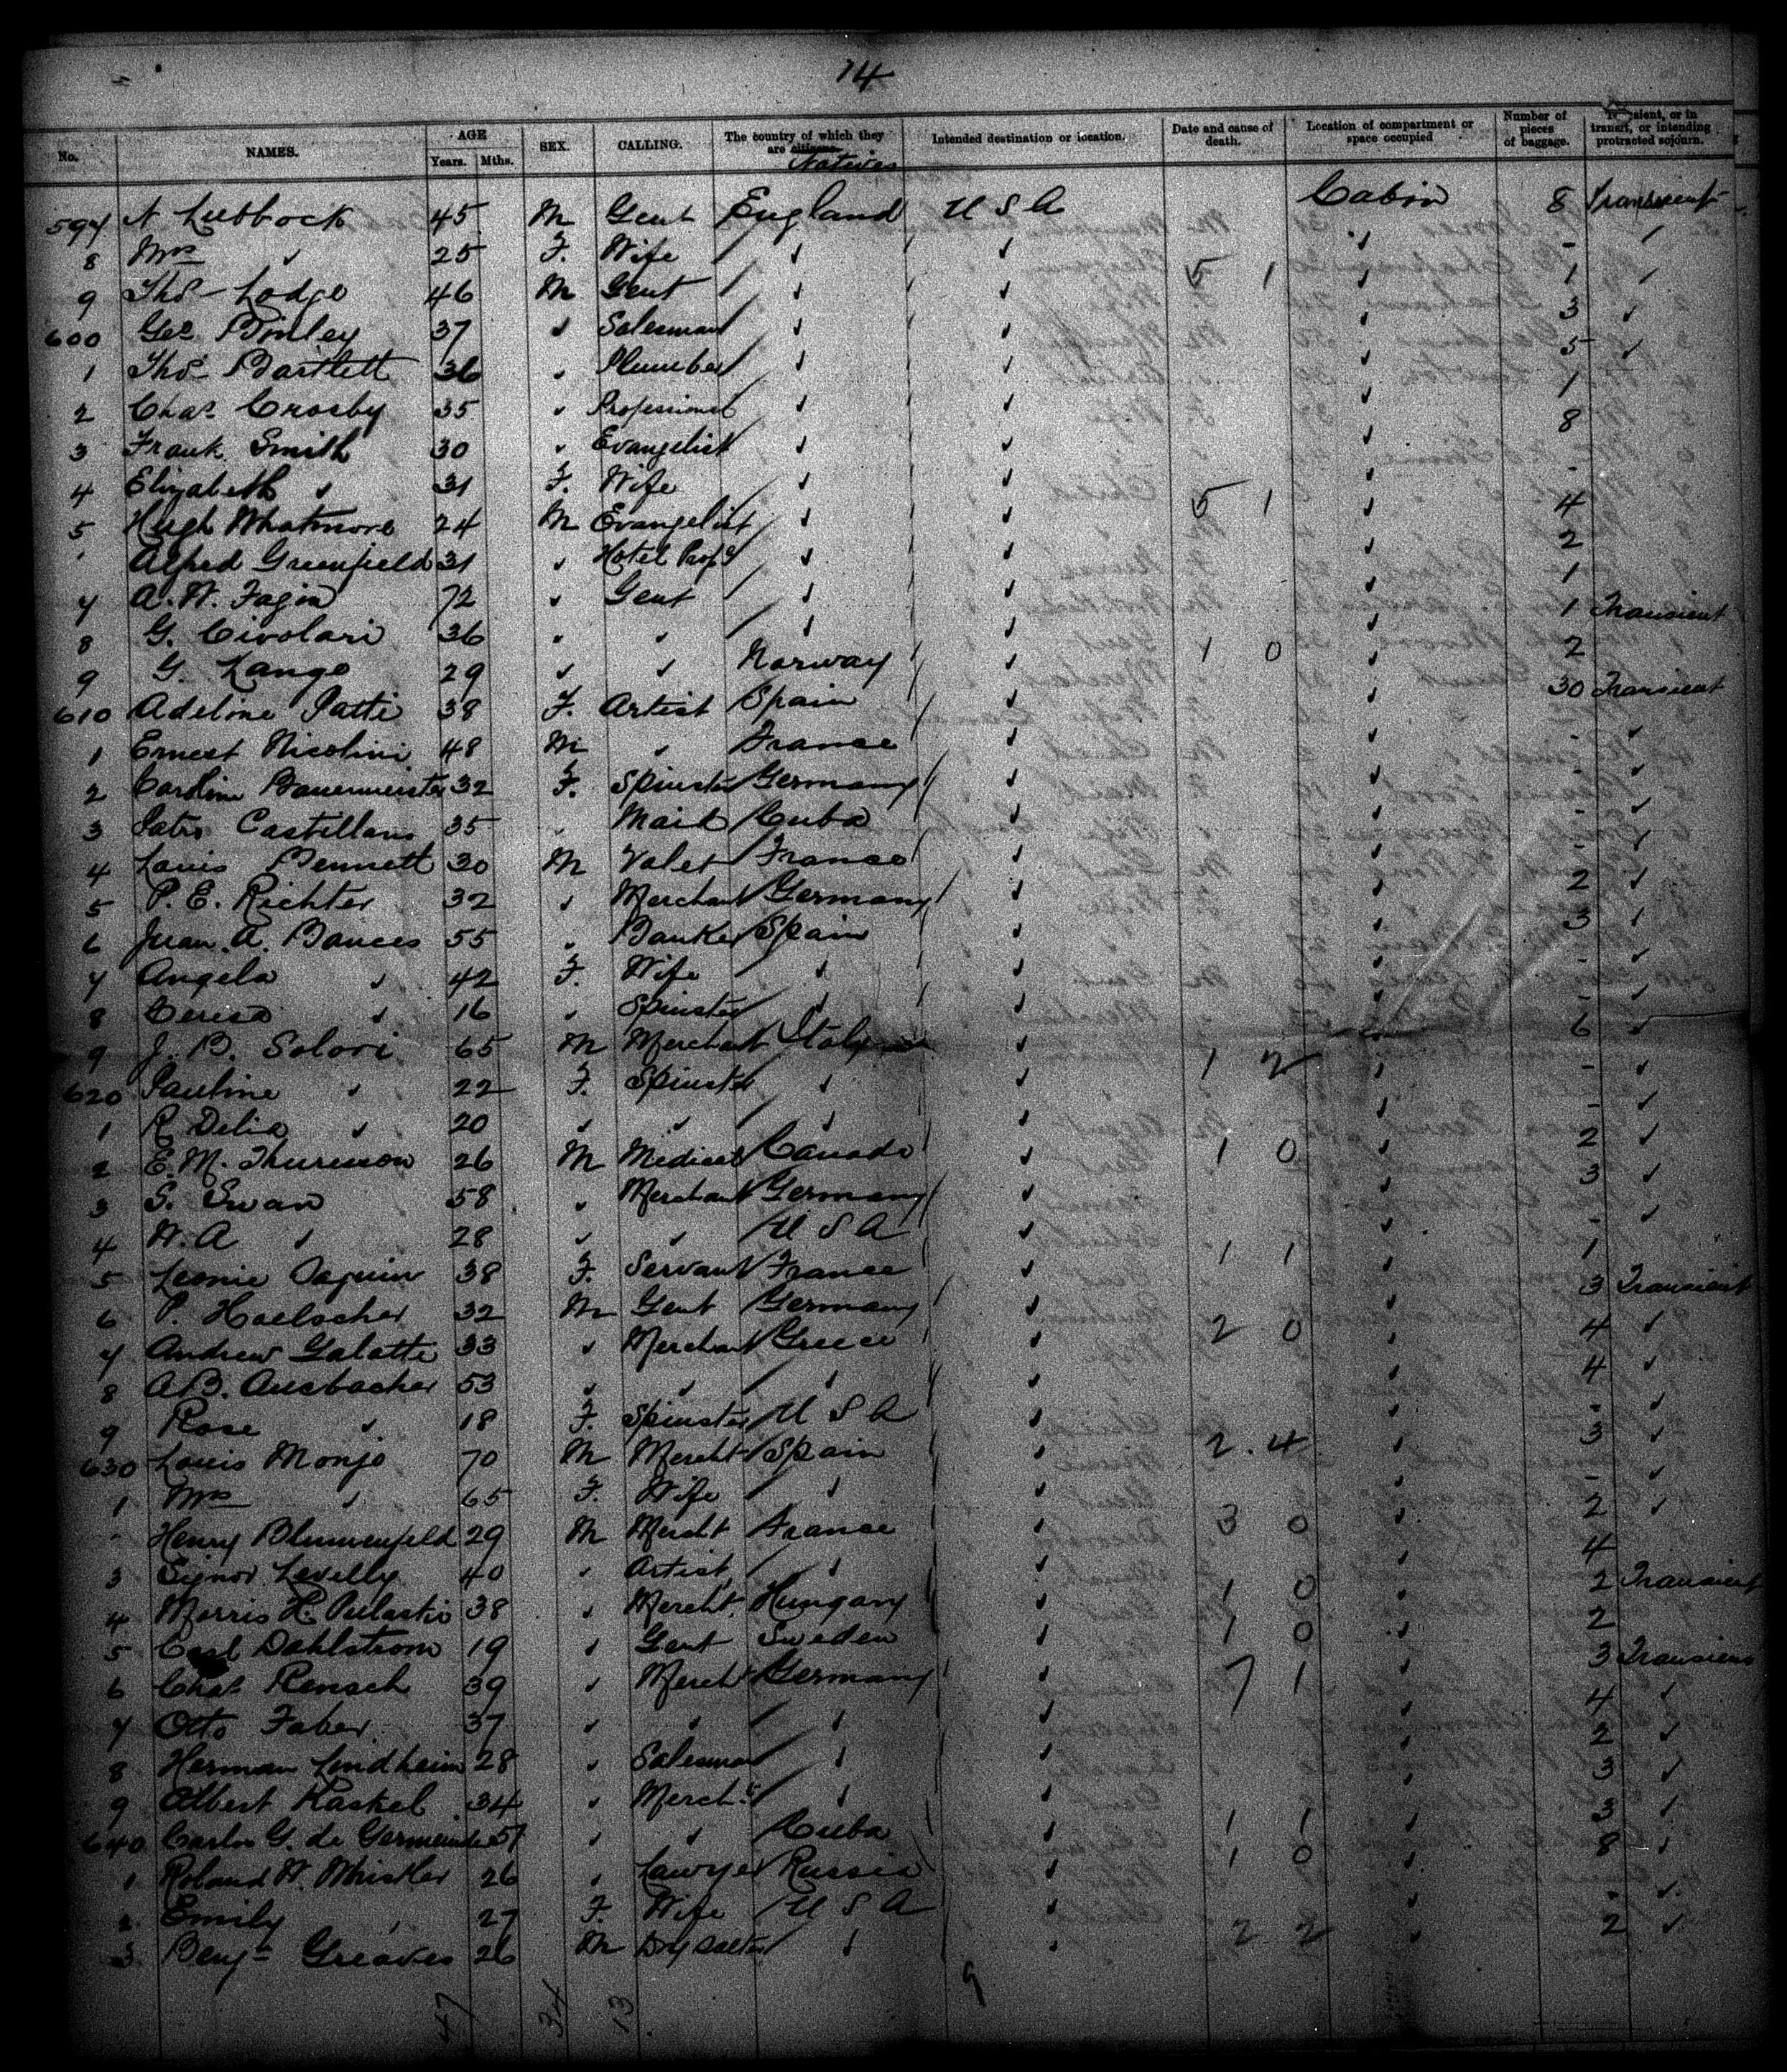 14
No. NAMES. AGE Years. Mths. SEX. CALLING. The country of which they are citizens. Natives Intended destination or location. Date and cause of death. Location of compartment or space occupied Number of pieces of baggage. Transient, or in transit, or intending protracted sojourn.
597 N Lubbock 45 M Gent England U S A Cabin 8 Transient
8 Mrs " 25 F. Wife " " " - "
9 Thos Lodge 46 M Gent " " 5 1 " 1 "
600 Geo. Binley 37 " Salesman " " " 3 "
1 Thos Bartlett 36 " Plumber " " " 5 "
2 Chas Crosby 35 " Professional " " " 1
3 Frank Smith 30 " Evangelist " " " 8
4 Elizabeth " 31 F. Wife " " " -
5 Hugh Whatmore 24 M Evangelist " " 5 1 " 4
Alfred Greenfield 31 " Hotel Propr " " " 2
7 A. W. Fagin 72 " Gent " " " 1
8 G. Civolari 36 " " " " " 1 Transient
9 G. Lange 29 " " Norway " 1 0 " 2
610 Adeline Patti 38 F. Artist Spain " " 30 Transient
1 Ernest Nicolini 48 M " France " " - "
2 Caroline Bauermeister 32 F. Spinster Germany " " - "
3 Castillano 35 " Maid Cuba " " - "
4 Louis Bennett 30 M Valet France " " - "
5 P. E. Richter 32 " Merchant Germany " " 2 "
6 Juan. A. Bances 55 " Banker Spain " " 3 "
7 Angela " 42 F. Wife " " " - "
8 " 16 " Spinster " " " - "
9 J. B. Solari 65 M Merchant Italy " 1 2 " 6 "
620 Pauline " 22 F. Spinster " " " - "
1 R Delia " 20 " " " " " - "
2 E. M. 26 M Medical Canada " 1 0 " 2 "
3 S. Swan 58 " Merchant Germany " " 3 "
4 W. A " 28 " " U S A " " - "
5 Leonie 38 F. Servant France " 1 1 " 1
6 P. Hoelscher 32 M Gent Germany " " 3 Transient
7 Andrew Galatti 33 " Merchant Greece " 2 0 " 4 "
8 A B. Ansbacher 53 " " " " " 4 "
9 Rose " 18 F. Spinster U S A " " - "
630 Louis Monjo 70 M Mercht Spain " 2 . 4 " 3 "
1 Mrs " 65 F. Wife " " " - "
Henry Blumenfeld 29 M Mercht France " 3 0 " 2 "
3 Signor Levelly 40 " Artist " " " 4
4 Morris H. 38 " Mercht. Hungary " 1 0 " 2 Transient
5 Carl Dahlstrom 19 " Gent Sweden " 1 0 " 2
6 Chas Rensch 39 " Mercht Germany " 7 1 " 3 Transient
7 Otto Faber 37 " " " " " 4 "
8 Herman Lindheim 28 " Salesman " " " 2 "
9 Albert Haskel 34 " Mercht " " " 3 "
640 Carlos G. de 51 " " Cuba " 1 1 " 3 "
1 Roland W. Whistler 26 " Lawyer Russia " 1 0 " 8 "
2 Emily " 27 F. Wife U S A " " - "
3 Benj. Greaves 26 M Drysalter " " 2 2 " 2 "
47 34 13 9